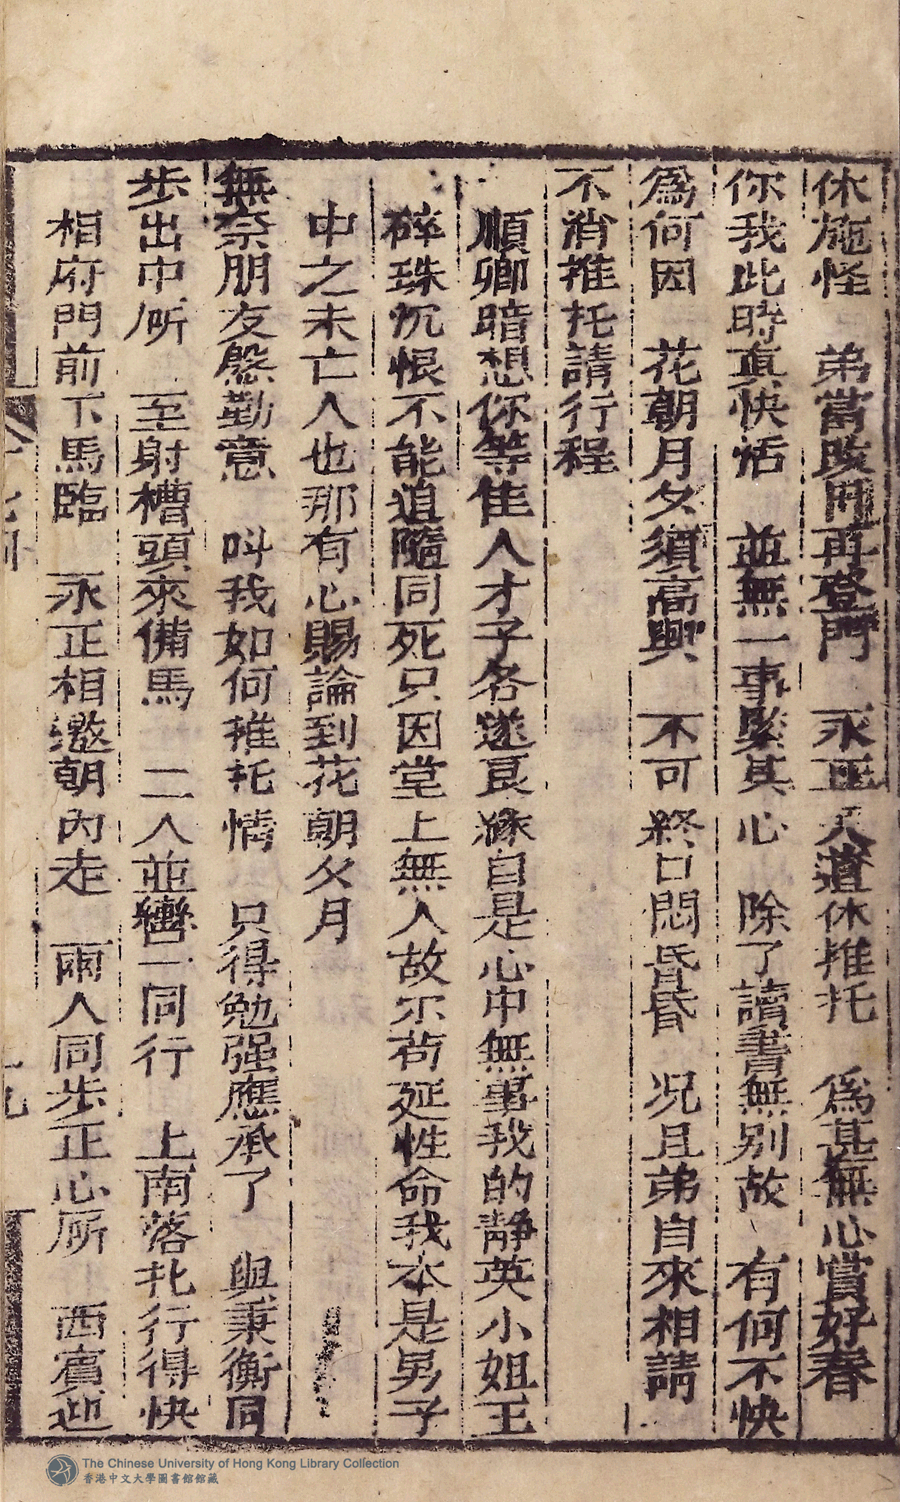 休施怪　弟當改日再登門　永正人道休推托　爲甚無心賞好春
你我此時真快活　並無一事緊其心　除了讀書無別故　有何不快
爲何因　花朝月夕須高興　不可終日悶昏昏　況且弟自來相請
不消推托請行程
順卿暗想你等佳人才子各遂良緣自是心中無事我的靜英小姐玉
碎珠沉恨不能追隨同死只因堂上無人故尔苟延性命我本是男子
中之未亡人也那有心賜論到花朝夕月
無奈朋友慇勤意　叫我如何推托情　只得勉强應承了　與秉衡同
步出中所　至射槽頭來備馬　二人並轡一同行　上南落北行得快
相府門前下馬臨　永正相邀朝內走　兩人同步正心厛　西賓迎
The Chinese University of Hong Kong Library Collection
香港中文大學圖書館館藏